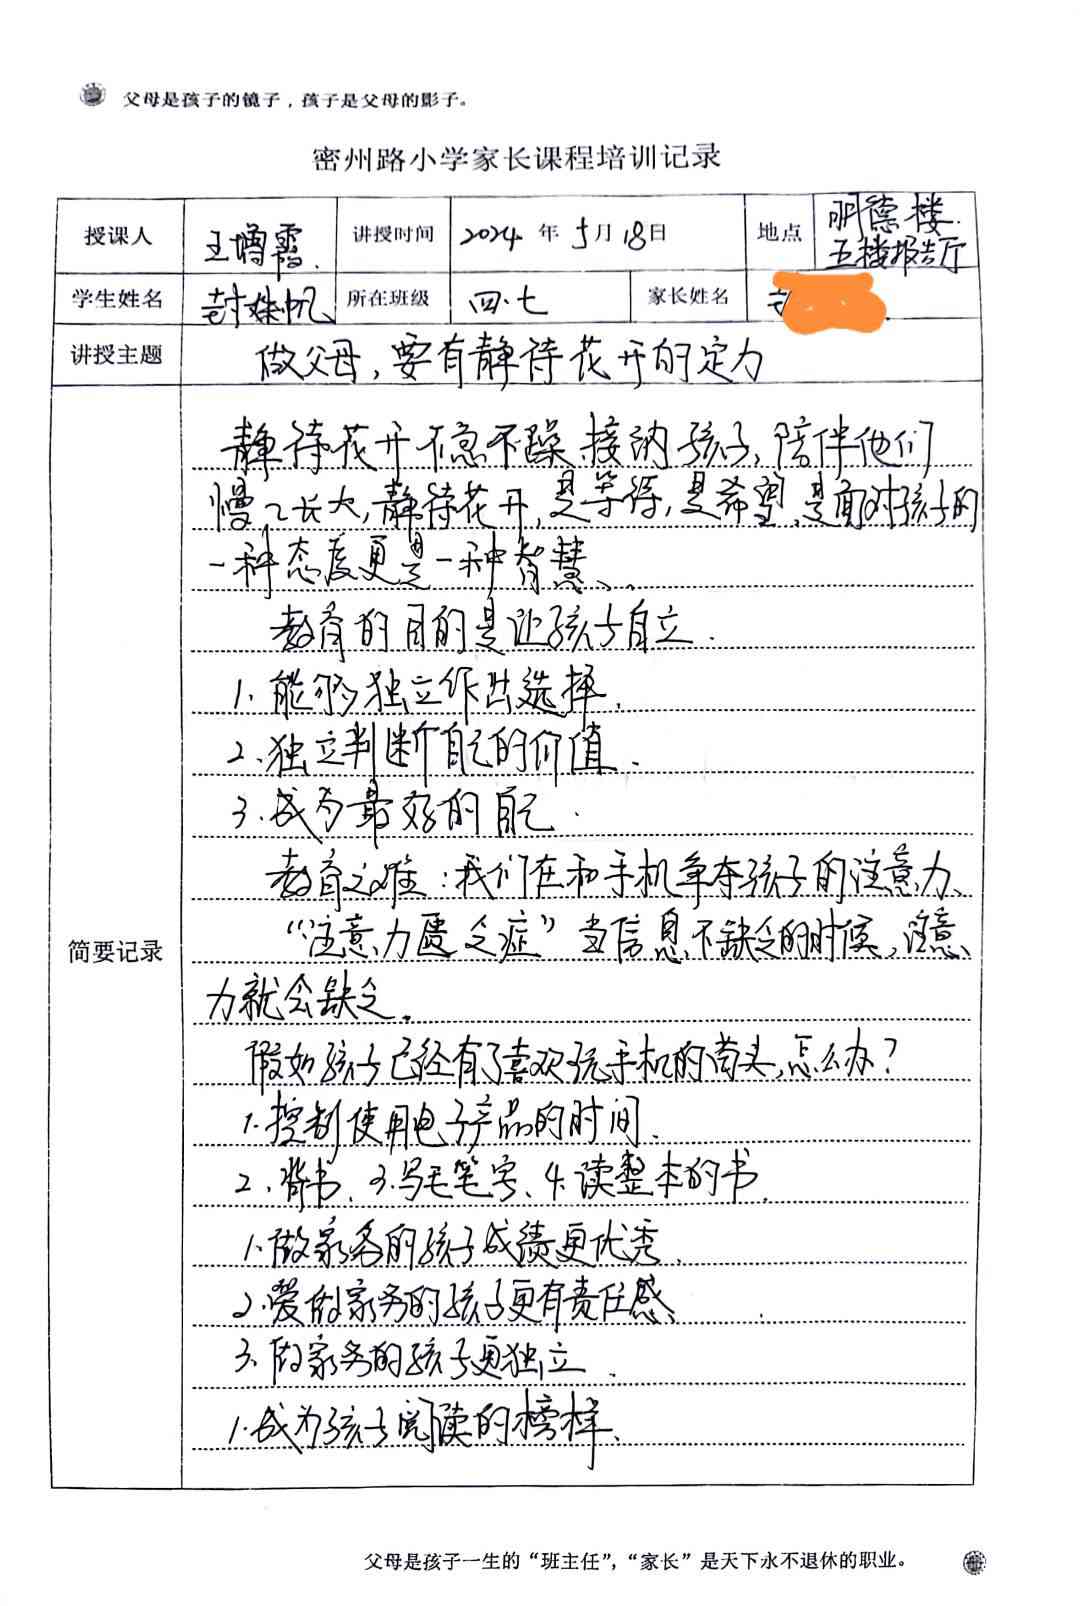 父母是孩子的镜子，孩子是父母的影子。
密州路小学家长课程培训记录
授课人 王增霞. 讲授时间 2024 年 5 月 18 日 地点 明德楼.
五楼报告厅
学生姓名 封姝帆 所在班级 四.七 家长姓名
讲授主题 做父母,要有静待花开的定力
静待花开不急不躁,接纳孩子,陪伴他们
慢慢长大,静待花开,是等待,是希望,是面对孩子的
一种态度更是一种智慧、
教育的目的是让孩子自立.
1.能够独立作出选择.
2.独立判断自己的价值.
3.成为最好的自己.
教育之难:我们在和手机争夺孩子的注意力、
“注意力匮乏症”当信息不缺乏的时候,注意
力就会缺乏。
简要记录
假如孩子已经有了喜欢玩手机的苗头,怎么办?
1.控制使用电子产品的时间.
2.背书、3.写毛笔字、4.读整本的书.
1.做家务的孩子成绩更优秀.
2.爱做家务的孩子更有责任感、
3.做家务的孩子更独立.
1.成为孩子阅读的榜样.
父母是孩子一生的“班主任”，“家长”是天下永不退休的职业。